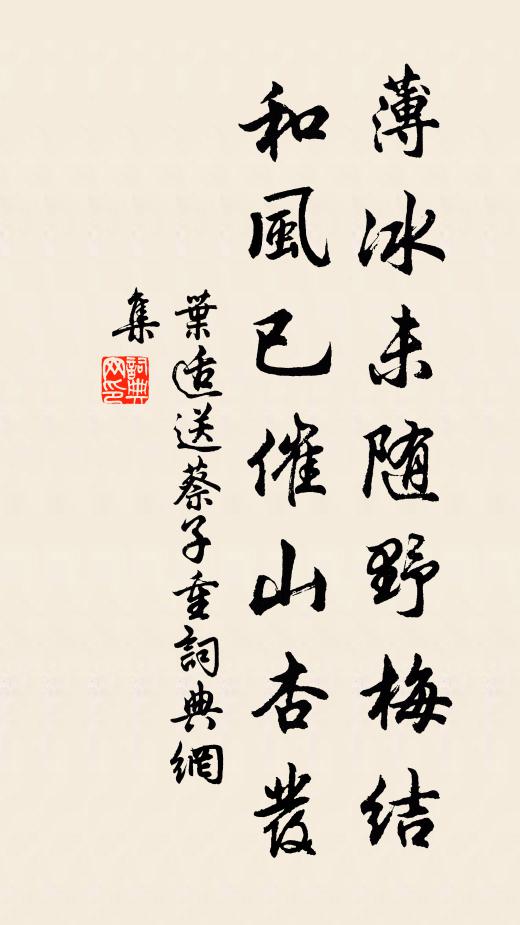 薄冰未随野梅结
和風已催山杏發
葉适送蔡子重詞典網
集
詞典網印